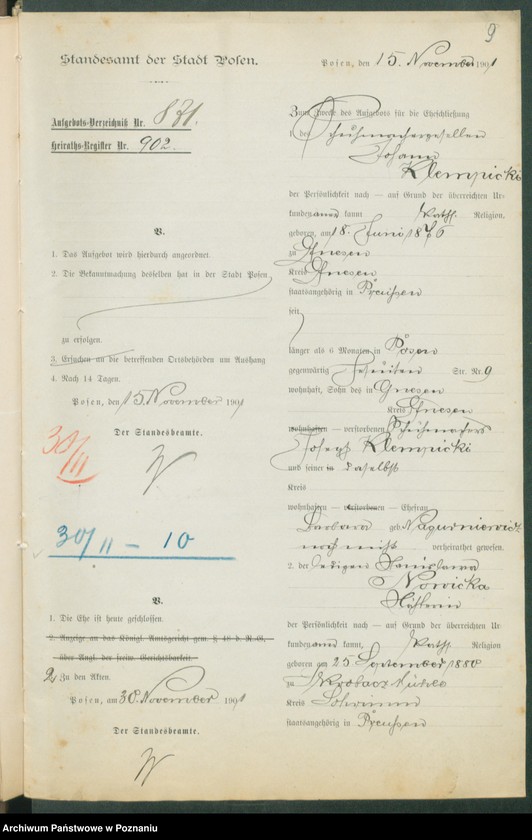 9
Standesamt der Stadt Posen.
Aufgebots-Verzeichniß Nr. 871.
Heiraths-Register Nr. 902.
V.
1. Das Aufgebot wird hierdurch angeordnet.
2. Die Bekanntmachung desselben hat in der Stadt Posen
zu erfolgen.
3. Ersuchen an die betreffenden Ortsbehörden um Aushang
4. Nach 14 Tagen.
Posen, den 15. November 1901
Der Standesbeamte.
30/11
30/11 – 10
V.
1. Die Ehe ist heute geschlossen.
2. Anzeige an das Königl. Amtsgericht gem. § 48 d. R.-G.
über Angl. der freiw. Gerichtsbarkeit.
2. Zu den Akten.
Posen, am 30. November 1901
Der Standesbeamte.
Posen, den 15. November 1901
Zum Zwecke des Aufgebots für die Eheschließung
1. des Schuhmachergesellen
Johann
Klempicki
der Persönlichkeit nach – auf Grund der überreichten Ur-
kunden anerkannt, kath. Religion,
geboren, am 18. Juni 1876
zu Gnesen
Kreis Gnesen
staatsangehörig in Preußen
seit
länger als 6 Monaten in Posen
gegenwärtig Str. Nr. 9
wohnhaft, Sohn des in Gnesen
Kreis Gnesen
wohnhaften – verstorbenen Schuhmachers
Joseph Klempicki
und seiner in daselbst
Kreis
wohnhaften – verstorbenen – Ehefrau
Barbara geb. Nagurniewicz
noch nicht verheirathet gewesen.
2. der ledigen Stanislawa
Nowicka
der Persönlichkeit nach – auf Grund der überreichten Ur-
kunden anerkannt, kath. Religion
geboren am 25 September 1880
zu
Kreis Schrimm
staatsangehörig in Preußen
Archiwum Państwowe w Poznaniu